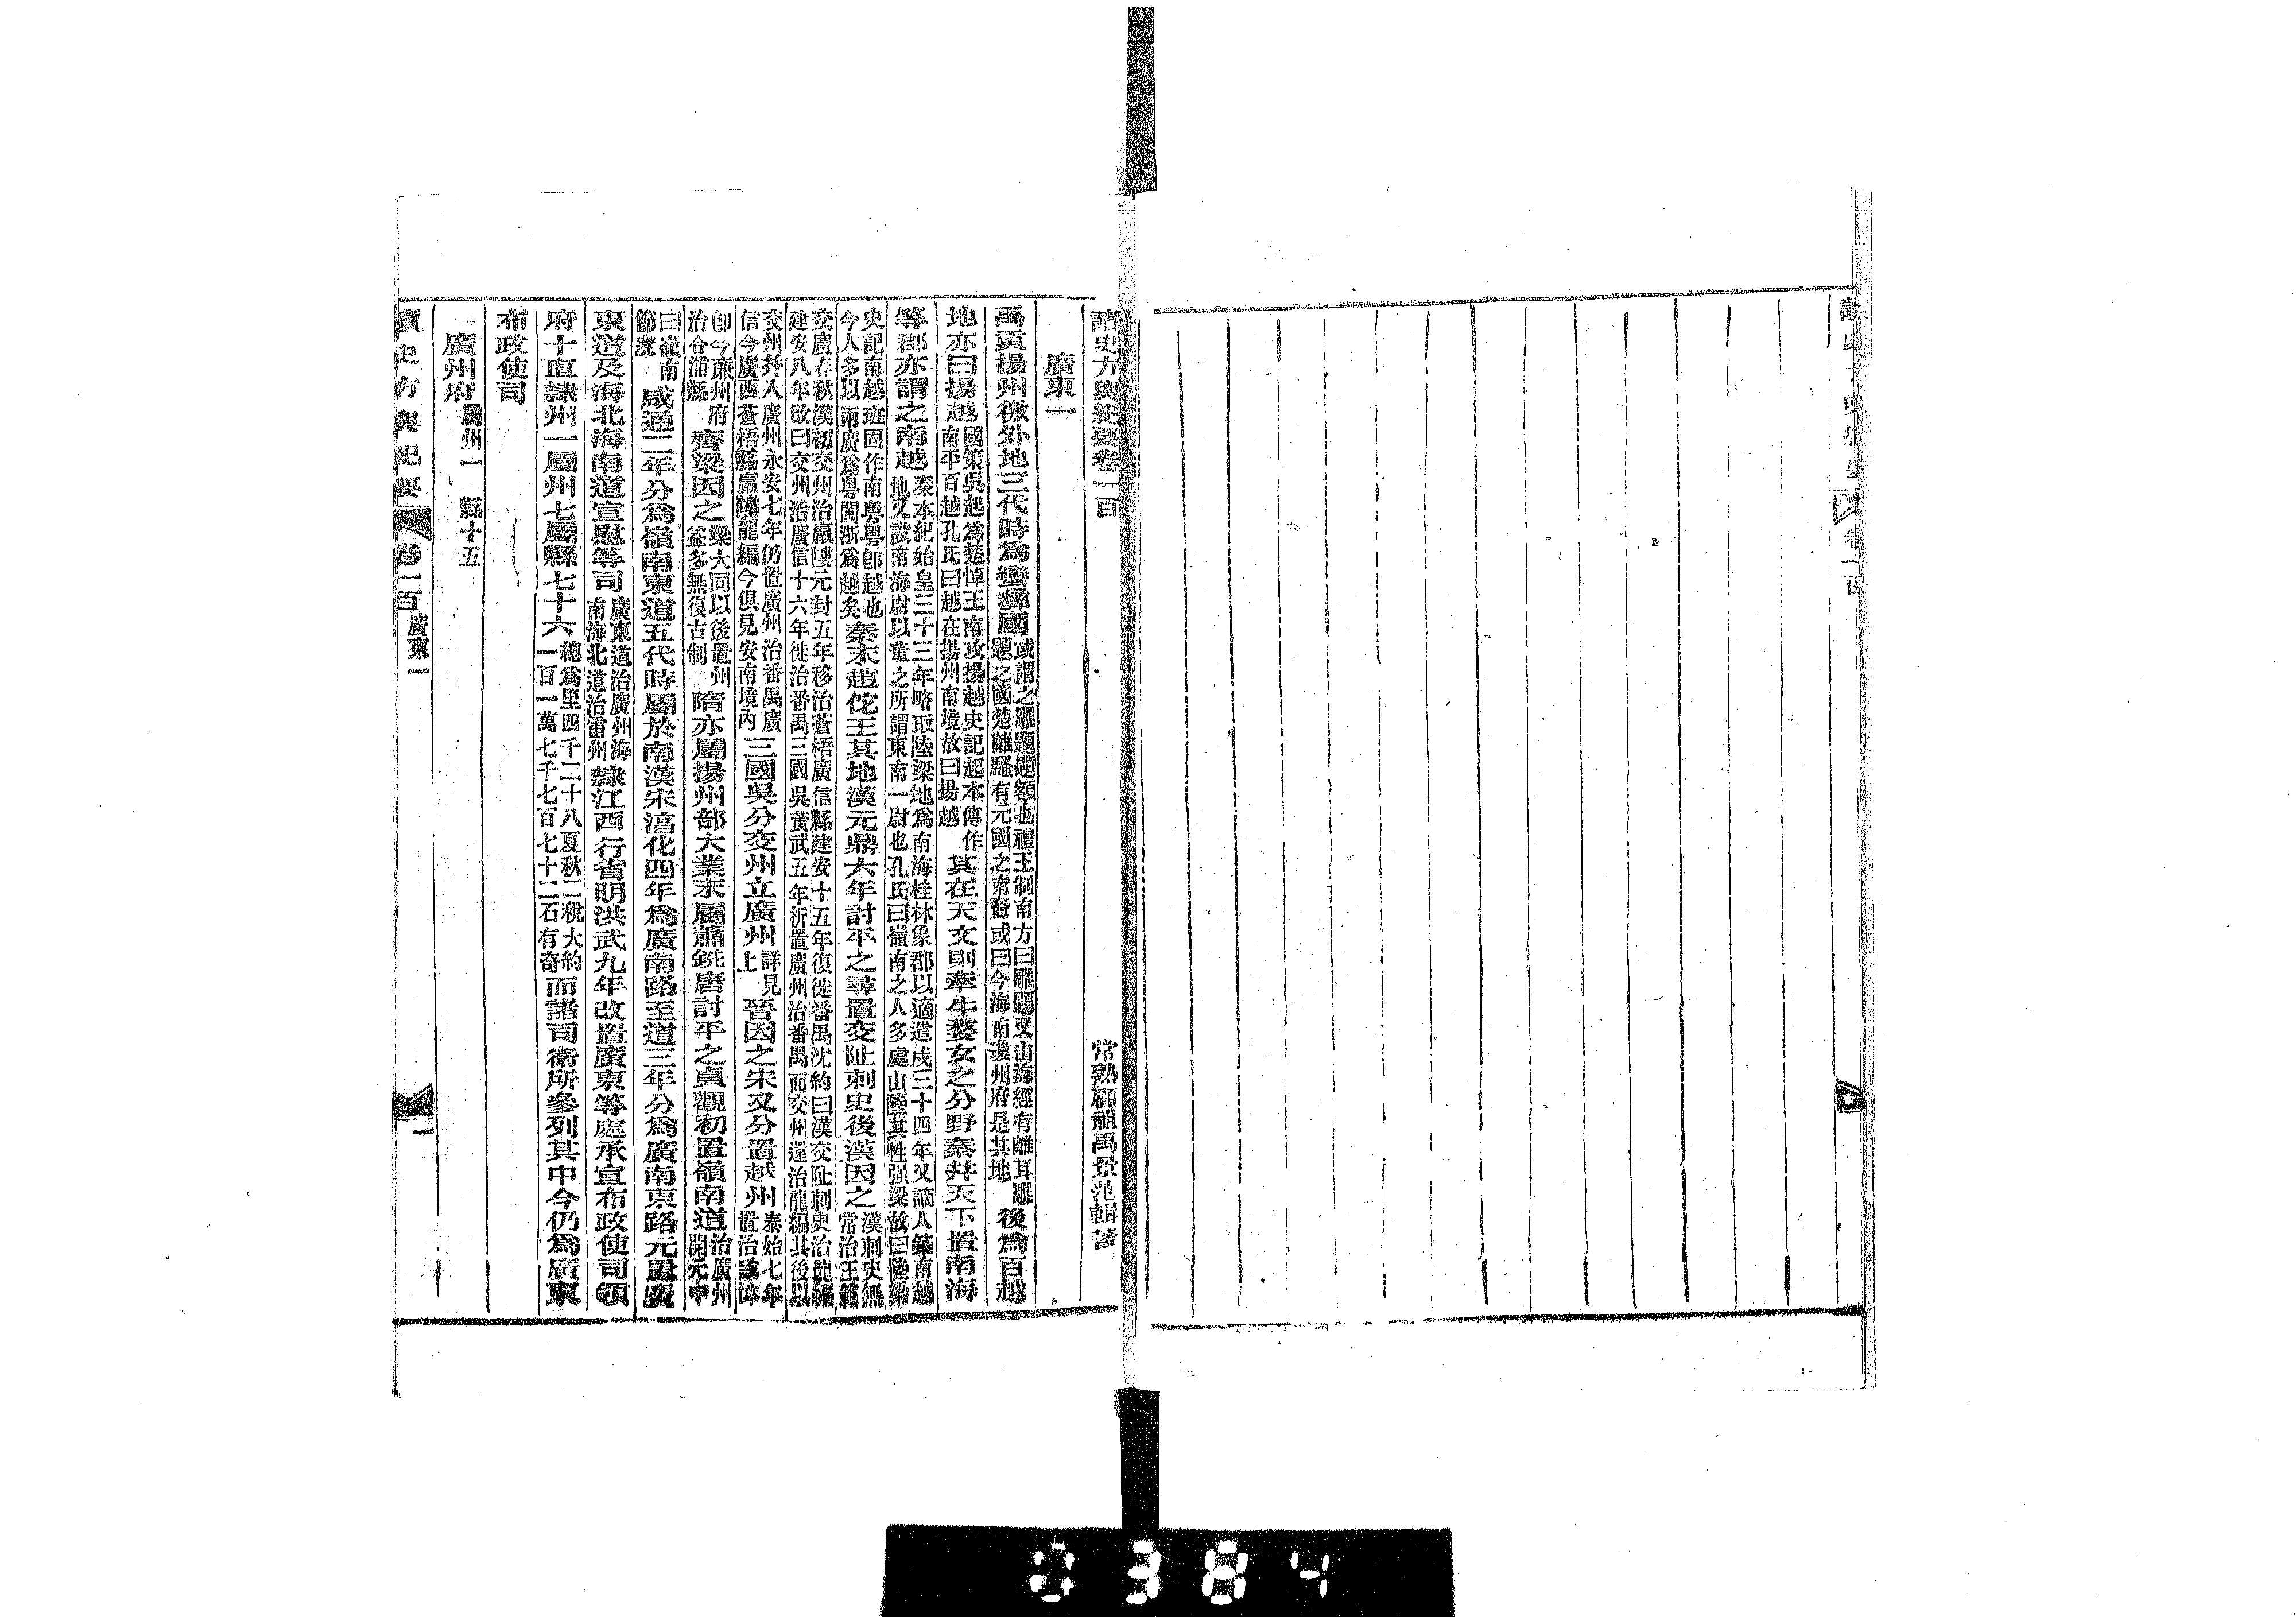 讀史方輿紀要卷一百
常熟顧祖禹景范輯著
廣東一
禹貢揚州徼外地三代時爲蠻彝國或謂之雕題題額也禮王制南方曰雕題又山海經有離耳雕題之國楚離騷有元國之南裔或曰今海南瓊州府是其地後爲百越
地亦曰揚越國策吳起爲楚悼王南攻揚越史記起本傳作南平百越孔氏曰越在揚州南境故曰揚越其在天文則牽牛婺女之分野秦幷天下置南海
等郡亦謂之南越秦本紀始皇三十三年略取陸梁地爲南海桂林象郡以適遣戍三十四年又謫人築南越地又設南海尉以董之所謂東南一尉也孔氏曰嶺南之人多處山陸其性强梁故曰陸梁
史記南越班固作南粵粵卽越也今人多以兩廣爲粵閩浙爲越矣秦末趙佗王其地漢元鼎六年討平之尋置交阯刺史後漢因之漢刺史無常治王範
交廣春秋漢初交州治羸𨻻元封五年移治蒼梧廣信縣建安十五年復徙番禺沈約曰漢交阯刺史治龍編建安八年改曰交州治廣信十六年徙治番禺三國吳黃武五年析置廣州治番禺而交州還治龍編其後以
交州幷入廣州永安七年仍置廣州治番禺廣信今廣西蒼梧縣羸𨻻龍編今俱見安南境內三國吳分交州立廣州詳見上晉因之宋又分置越州泰始七年置治臨漳
卽今廉州府治合浦縣齊梁因之梁大同以後置州益多無復古制隋亦屬揚州部大業末屬蕭銑唐討平之貞觀初置嶺南道治廣州開元中
曰嶺南節度咸通二年分爲嶺南東道五代時屬於南漢宋淳化四年爲廣南路至道三年分爲廣南東路元置廣
東道及海北海南道宣慰等司廣東道治廣州海南海北道治雷州隸江西行省明洪武九年改置廣東等處承宣布政使司領
府十直隸州一屬州七屬縣七十六總爲里四千二十八夏秋二稅大約一百一萬七千七百七十二石有奇而諸司衛所參列其中今仍爲廣東
布政使司
廣州府屬州一縣十五
讀史方輿紀要 卷一百 廣東一 一
0384